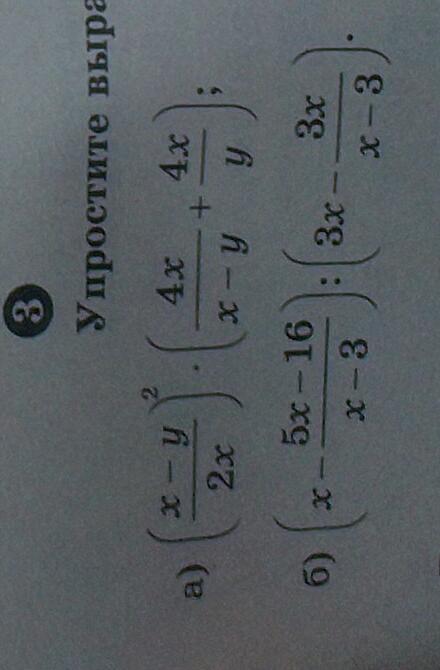 3
Упростите выра
а) ((x − y)/(2x))² · (4x/(x − y) + 4x/y);
б) (x − (5x − 16)/(x − 3)) : (3x − 3x/(x − 3)).